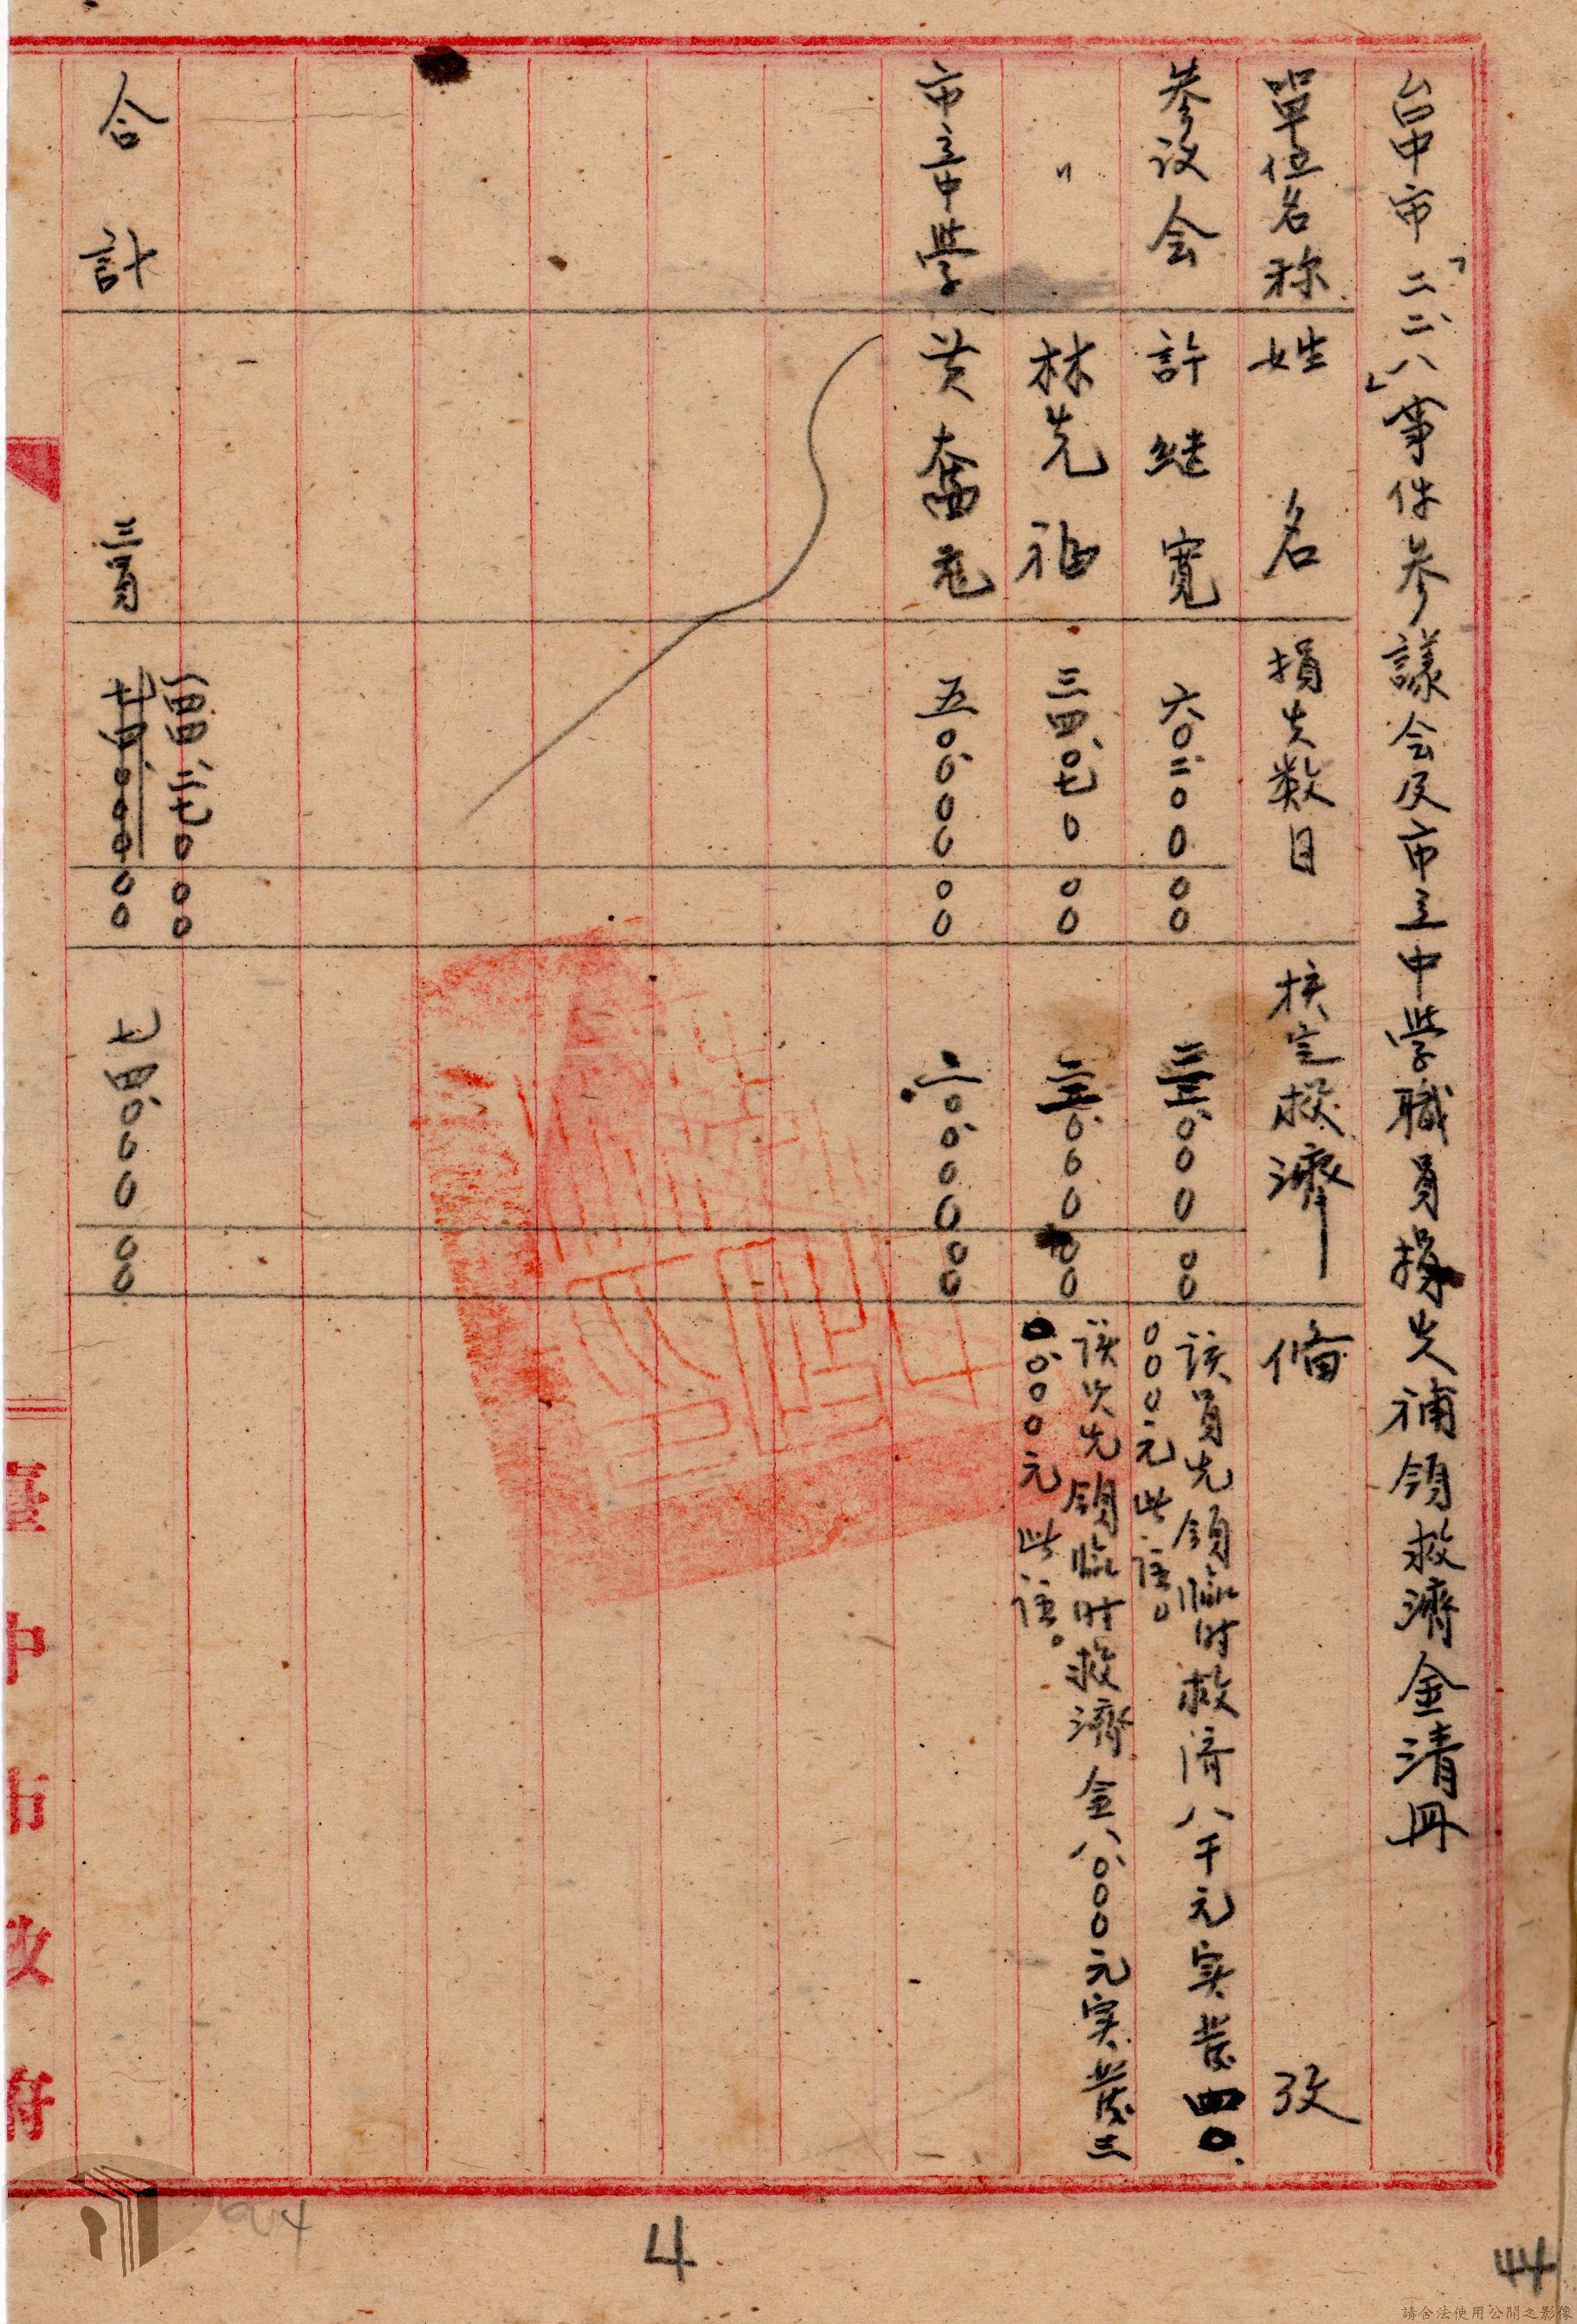 台中市「二二八」事件參議会及市立中學職員損失補領救濟金清冊
單位名称 姓名 損失数目 核定救濟 備攷
參议会 許继寬 六〇、二〇〇 〇〇 三、〇〇〇 〇〇 該員先領臨时救济八千元实发四〇、
〇〇〇元此註。
〃 林先 三四、〇七〇 〇〇 〇、〇〇〇 〇〇 該员先領臨时救濟金八、〇〇〇元实发三
〇、〇〇〇元此註。
市立中學 黃奮 五〇、〇〇〇 〇〇 二〇、〇〇〇 〇〇
一四四、二七〇 〇〇
合計 三員 七四、〇〇〇 〇〇 七四、〇〇〇 〇〇
臺中市政府
4
44
請合法使用公開之影像